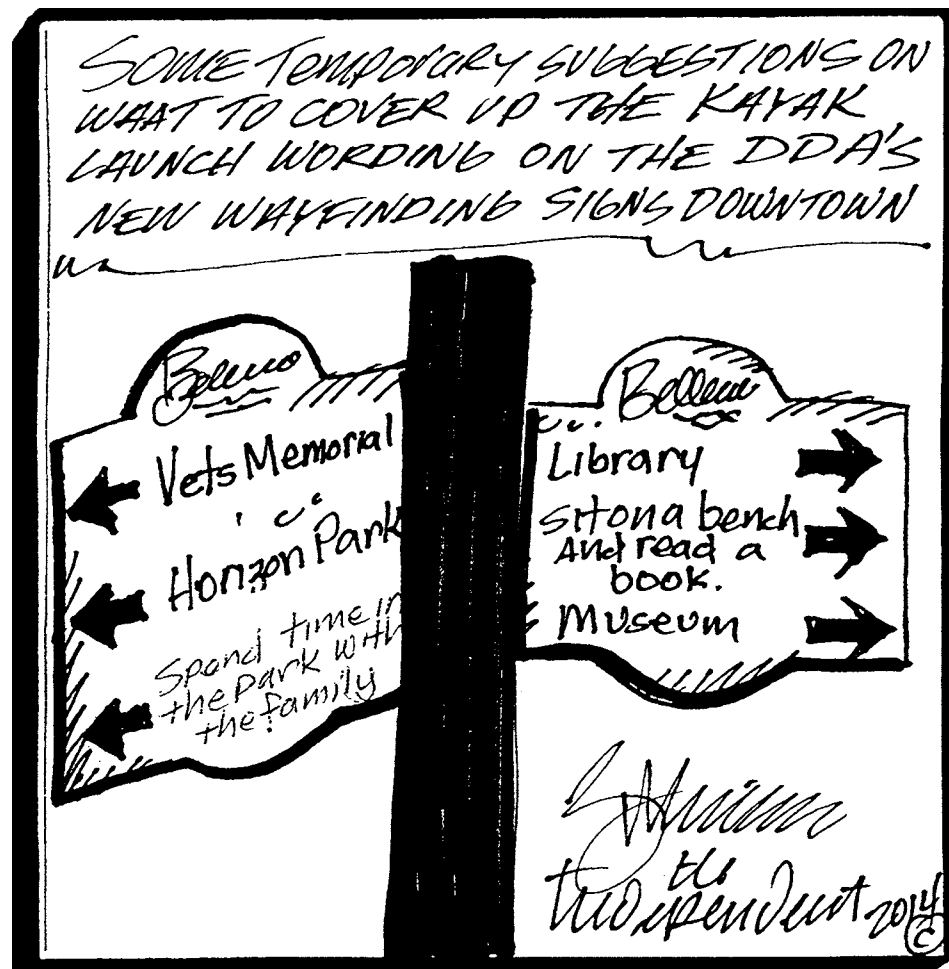 SOME TEMPORARY SUGGESTIONS ON
WHAT TO COVER UP THE KAYAK
LAUNCH WORDING ON THE DDA'S
NEW WAYFINDING SIGNS DOWNTOWN
Vets Memorial
Horizon Park
Spend time in
the park with
the family
Library
sit on a bench
And read a
book.
Museum
the
Independent 2014
©